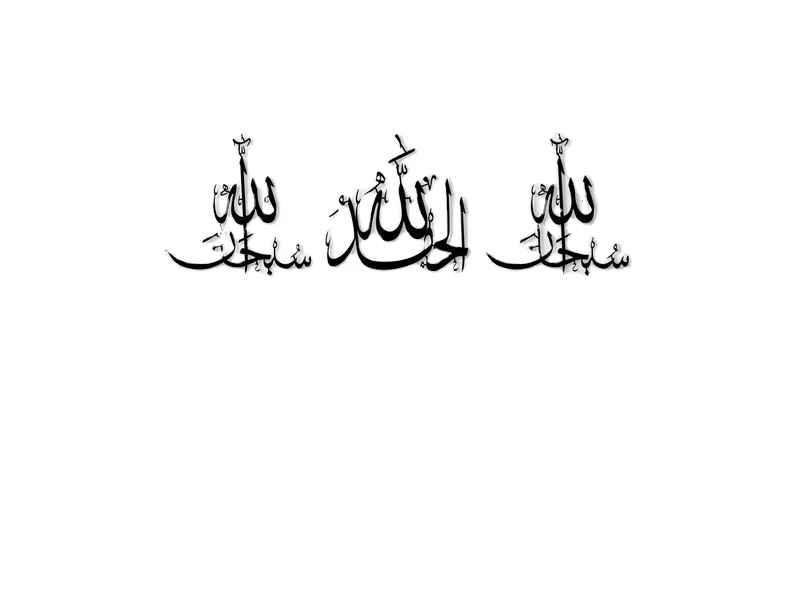 سُبْحَانَ اللّٰه الْحَمْدُ لِلّٰه سُبْحَانَ اللّٰه